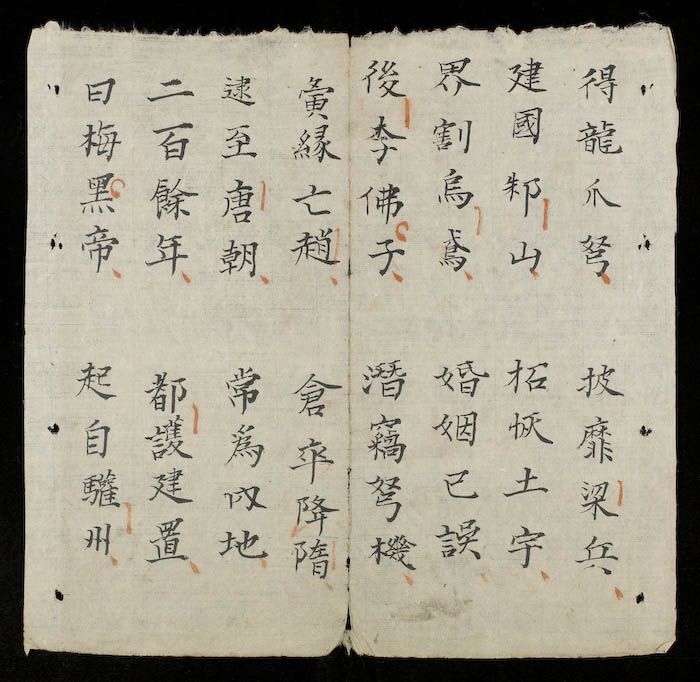 得龍爪弩 披靡梁兵
建國鄒山 拓恢土宇
界割烏鳶 婚姻已誤
後李佛子 潛竊弩機
夤緣亡趙 倉卒降隋
逮至唐朝 常爲內地
二百餘年 都護建置
曰梅黑帝 起自驩州